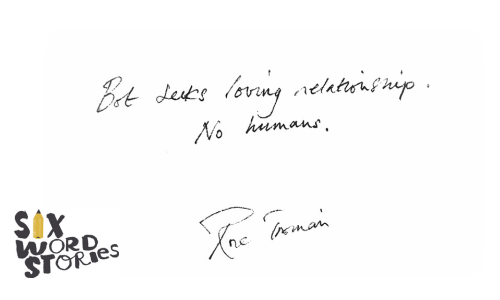 Bot seeks loving relationship.
No humans.
SIX
WORD
STORIES